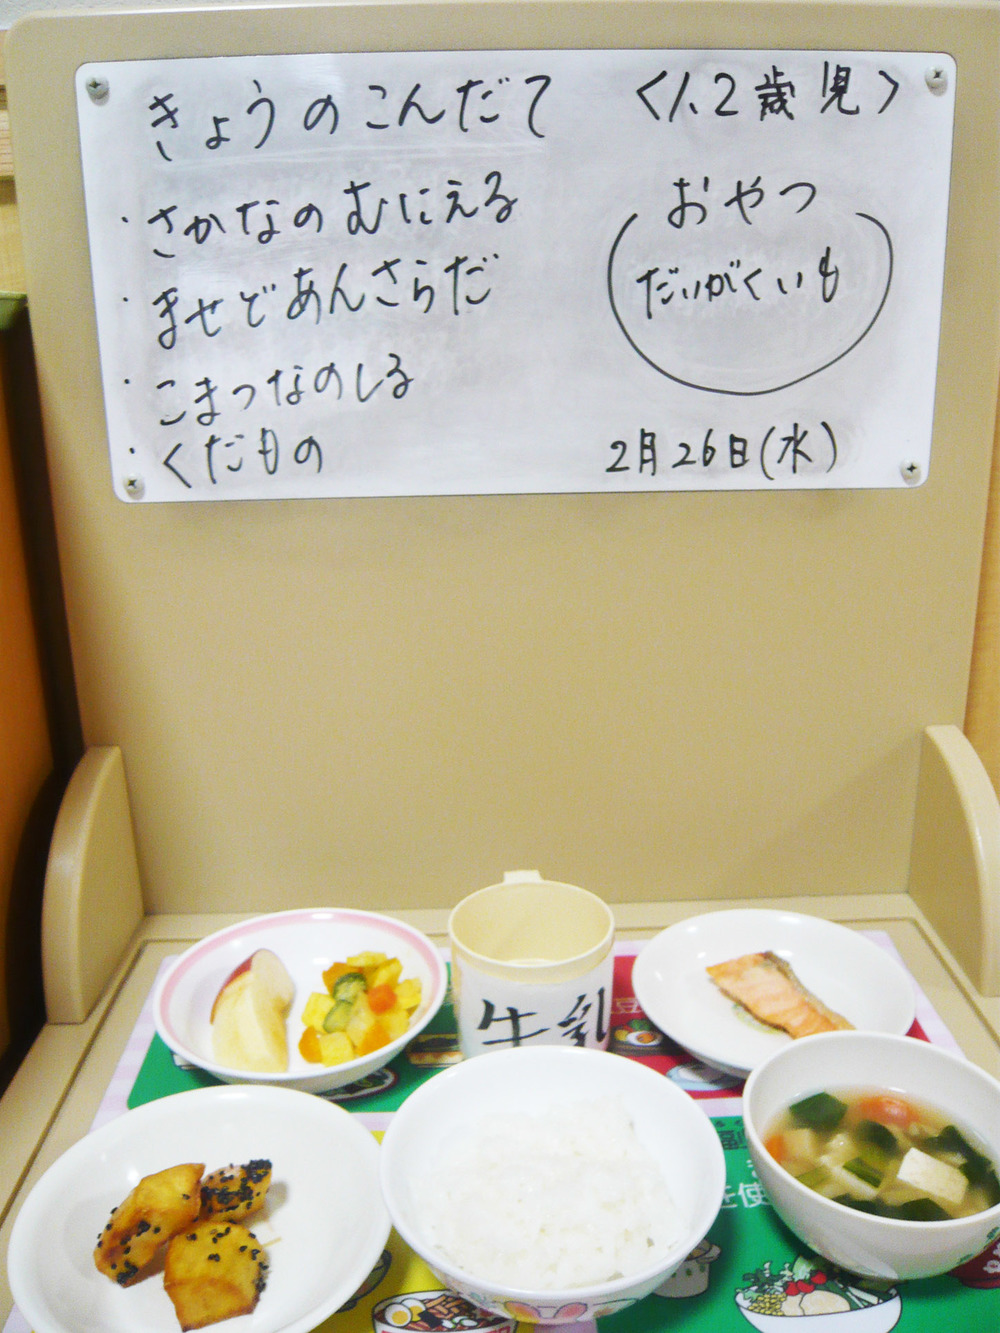 きょうのこんだて
・さかなのむにえる
・ませどあんさらだ
・こまつなのしる
・くだもの
〈1.2歳児〉
おやつ
だいがくいも
2月26日(水)
牛乳